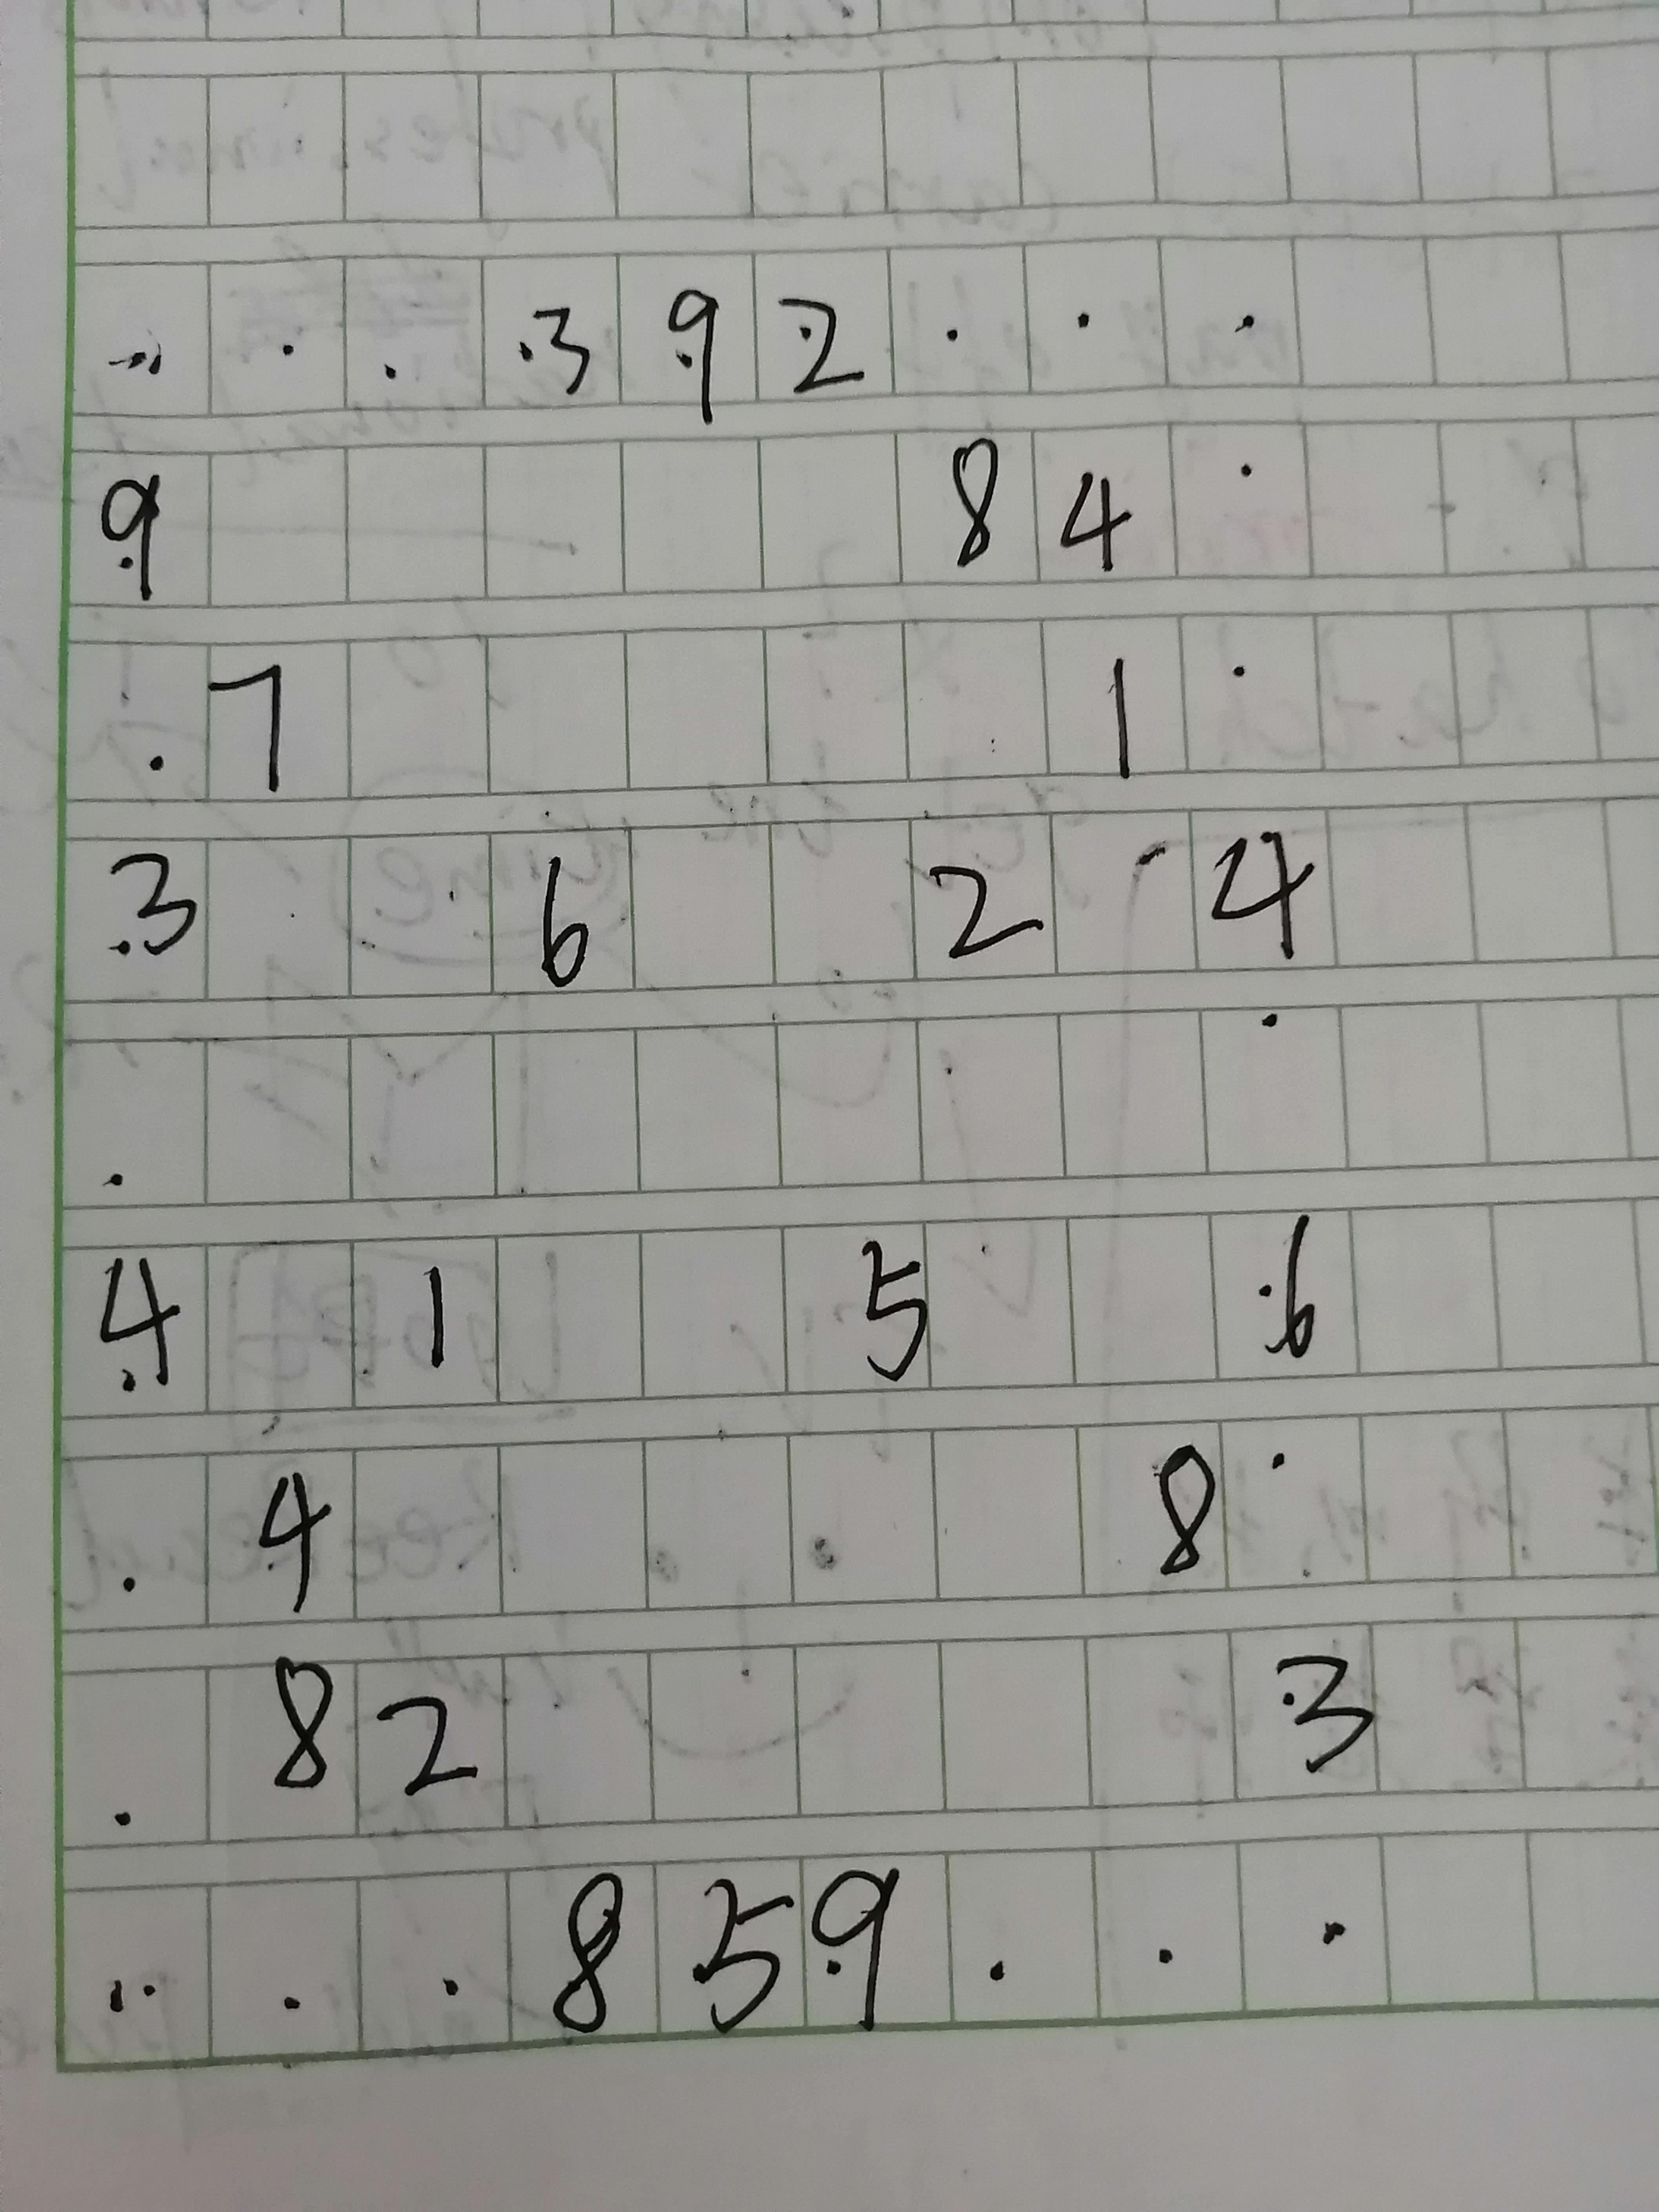 3 9 2
9 8 4
7 1
3 6 2 4
4 1 5 6
4 8
8 2 3
8 5 9